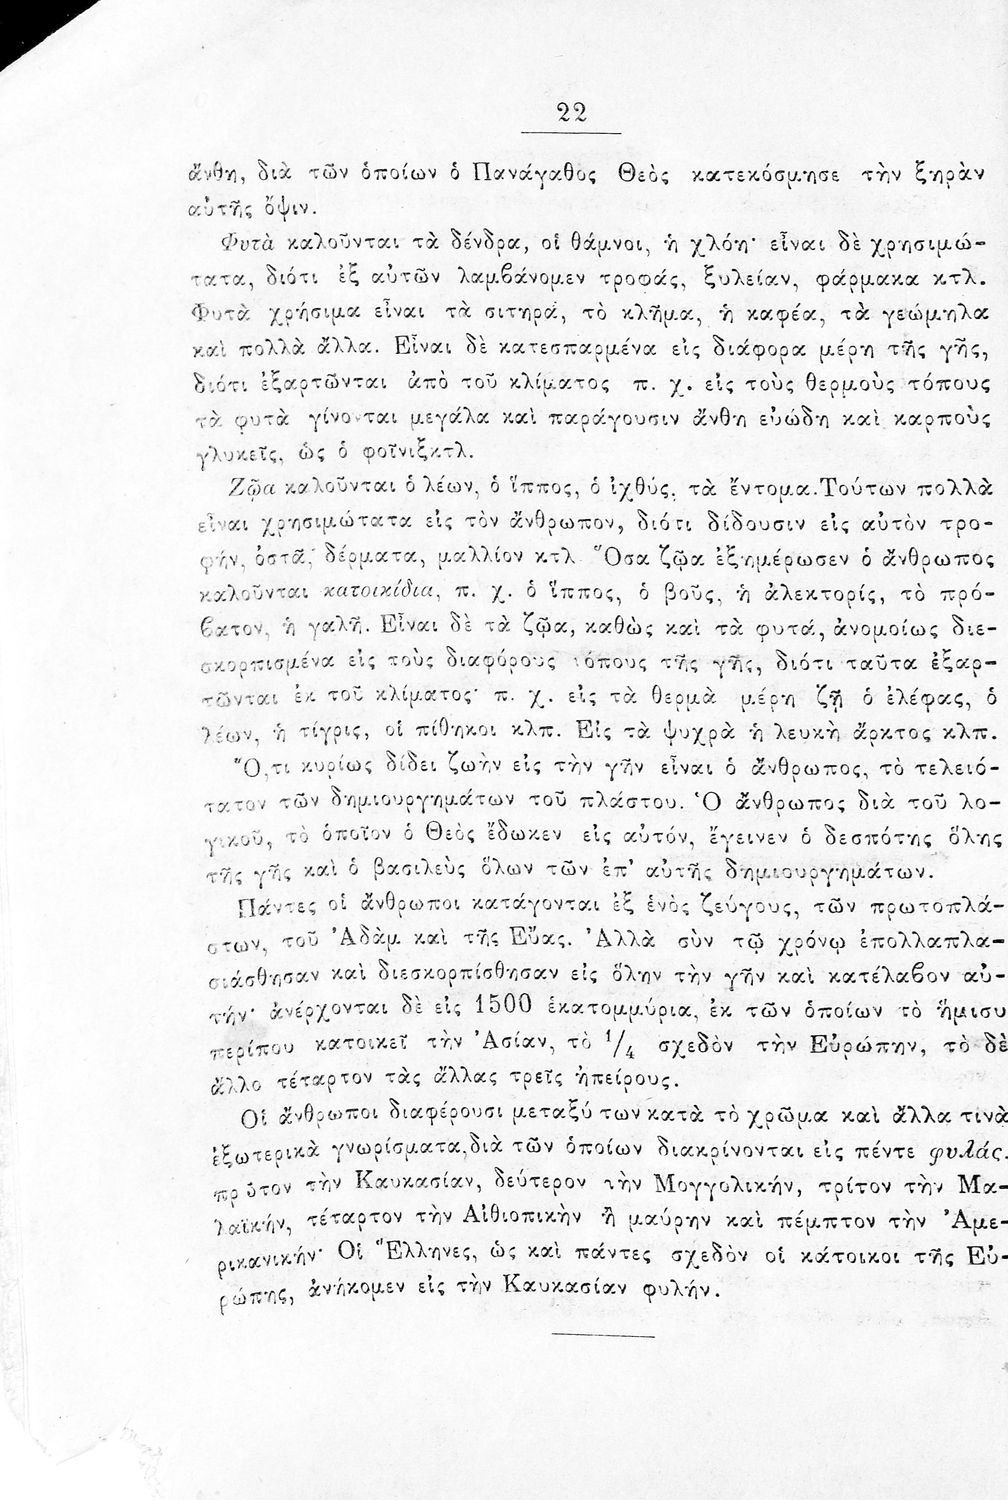 22
ἄνθη, διὰ τῶν ὁποίων ὁ Πανάγαθος Θεὸς κατεκόσμησε τὴν ξηρὰν
αὐτῆς ὄψιν.
Φυτὰ καλοῦνται τὰ δένδρα, οἱ θάμνοι, ἡ χλόη· εἶναι δὲ χρησιμώ-
τατα, διότι ἐξ αὐτῶν λαμβάνομεν τροφάς, ξυλείαν, φάρμακα κτλ.
Φυτὰ χρήσιμα εἶναι τὰ σιτηρά, τὸ κλῆμα, ἡ καφέα, τὰ γεώμηλα
καὶ πολλὰ ἄλλα. Εἶναι δὲ κατεσπαρμένα εἰς διάφορα μέρη τῆς γῆς,
διότι ἐξαρτῶνται ἀπὸ τοῦ κλίματος π. χ. εἰς τοὺς θερμοὺς τόπους
τὰ φυτὰ γίνονται μεγάλα καὶ παράγουσιν ἄνθη εὐώδη καὶ καρποὺς
γλυκεῖς, ὡς ὁ φοῖνιξκτλ.
Ζῷα καλοῦνται ὁ λέων, ὁ ἵππος, ὁ ἰχθύς, τὰ ἔντομα.Τούτων πολλὰ
εἶναι χρησιμώτατα εἰς τὸν ἄνθρωπον, διότι δίδουσιν εἰς αὐτὸν τρο-
φήν, ὀστᾶ, δέρματα, μαλλίον κτλ. Ὅσα ζῷα ἐξημέρωσεν ὁ ἄνθρωπος
καλοῦνται κατοικίδια, π. χ. ὁ ἵππος, ὁ βοῦς, ἡ ἀλεκτορίς, τὸ πρό-
βατον, ἡ γαλῆ. Εἶναι δὲ τὰ ζῷα, καθὼς καὶ τὰ φυτά, ἀνομοίως διε-
σκορπισμένα εἰς τοὺς διαφόρους τόπους τῆς γῆς, διότι ταῦτα ἐξαρ-
τῶνται ἐκ τοῦ κλίματος· π. χ. εἰς τὰ θερμὰ μέρη ζῇ ὁ ἐλέφας, ὁ
λέων, ἡ τίγρις, οἱ πίθηκοι κλπ. Εἰς τὰ ψυχρὰ ἡ λευκὴ ἄρκτος κλπ.
Ὅ,τι κυρίως δίδει ζωὴν εἰς τὴν γῆν εἶναι ὁ ἄνθρωπος, τὸ τελειό-
τατον τῶν δημιουργημάτων τοῦ πλάστου. Ὁ ἄνθρωπος διὰ τοῦ λο-
γικοῦ, τὸ ὁποῖον ὁ Θεὸς ἔδωκεν εἰς αὐτόν, ἔγεινεν ὁ δεσπότης ὅλης
τῆς γῆς καὶ ὁ βασιλεὺς ὅλων τῶν ἐπ' αὐτῆς δημιουργημάτων.
Πάντες οἱ ἄνθρωποι κατάγονται ἐξ ἑνὸς ζεύγους, τῶν πρωτοπλά-
στων, τοῦ Ἀδὰμ καὶ τῆς Εὔας. Ἀλλὰ σὺν τῷ χρόνῳ ἐπολλαπλα-
σιάσθησαν καὶ διεσκορπίσθησαν εἰς ὅλην τὴν γῆν καὶ κατέλαβον αὐ-
τήν· ἀνέρχονται δὲ εἰς 1500 ἑκατομμύρια, ἐκ τῶν ὁποίων τὸ ἥμισυ
περίπου κατοικεῖ τὴν Ἀσίαν, τὸ 1/4 σχεδὸν τὴν Εὐρώπην, τὸ δὲ
ἄλλο τέταρτον τὰς ἄλλας τρεῖς ἠπείρους.
Οἱ ἄνθρωποι διαφέρουσι μεταξύ των κατὰ τὸ χρῶμα καὶ ἄλλα τινὰ
ἐξωτερικὰ γνωρίσματα, διὰ τῶν ὁποίων διακρίνονται εἰς πέντε φυλάς.
πρῶτον τὴν Καυκασίαν, δεύτερον τὴν Μογγολικήν, τρίτον τὴν Μα-
λαϊκήν, τέταρτον τὴν Αἰθιοπικὴν ἢ μαύρην καὶ πέμπτον τὴν Ἀμε-
ρικανικήν· Οἱ Ἕλληνες, ὡς καὶ πάντες σχεδὸν οἱ κάτοικοι τῆς Εὐ-
ρώπης, ἀνήκομεν εἰς τὴν Καυκασίαν φυλήν.